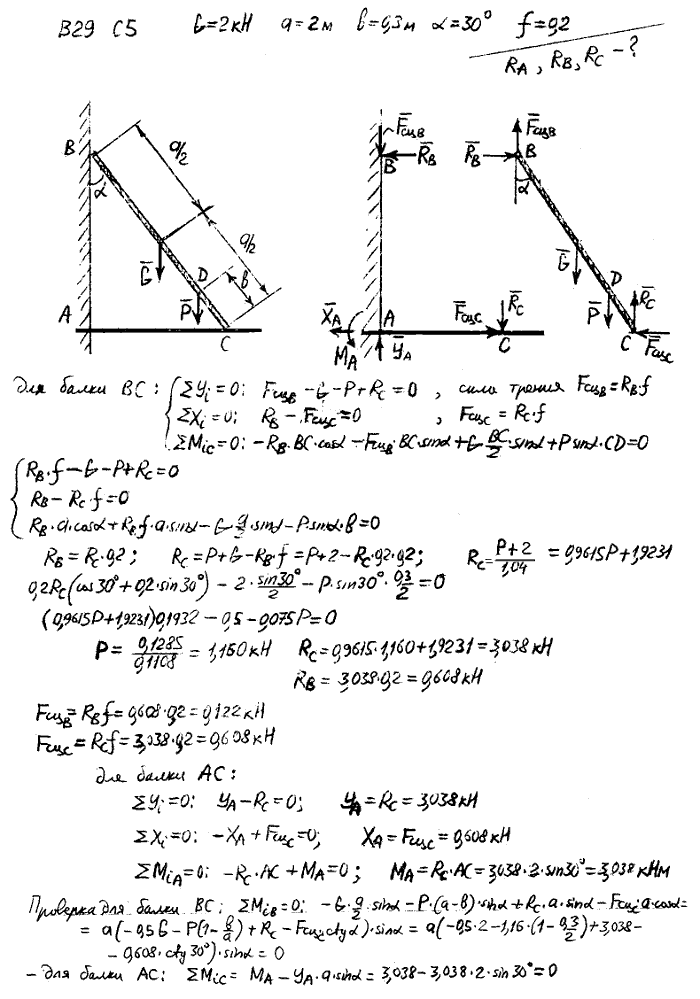 В29 С5 G=2кН a=2м b=0,3м α=30° f=0,2
R_A, R_B, R_C - ?
B α a/2 a/2 b G̅ D P̅ A C
F̅сцB B R̅_B X̅_A A M_A y̅_A F̅сцC R̅_C C
F̅сцB R̅_B B α G̅ D P̅ R̅_C C F̅сцC
для балки BC: { ΣYi=0: FсцB - G - P + R_C = 0, сила трения FсцB = R_B·f
ΣXi=0: R_B - FсцC = 0, FсцC = R_C·f
ΣMiC=0: -R_B·BC·cosα - FсцB·BC·sinα + G·BC/2·sinα + P·sinα·CD = 0
{ R_B·f - G - P + R_C = 0
R_B - R_C·f = 0
R_B·a·cosα + R_B·f·a·sinα - G·a/2·sinα - P·sinα·b = 0
R_B = R_C·0,2; R_C = P+G-R_B·f = P+2-R_C·0,2·0,2; R_C = (P+2)/1,04 = 0,9615P+1,9231
0,2R_C(cos30°+0,2·sin30°) - 2·sin30°/2 - P·sin30°·0,3/2 = 0
(0,9615P+1,9231)0,1932 - 0,5 - 0,075P = 0
P = 0,1285/0,1108 = 1,160кН R_C = 0,9615·1,160+1,9231 = 3,038кН
R_B = 3,038·0,2 = 0,608кН
FсцB = R_B f = 0,608·0,2 = 0,122кН
FсцC = R_C f = 3,038·0,2 = 0,608кН
для балки AC:
ΣYi=0: y_A - R_C = 0; y_A = R_C = 3,038кН
ΣXi=0: -X_A + FсцC = 0; X_A = FсцC = 0,608кН
ΣMiA=0: -R_C·AC + M_A = 0; M_A = R_C·AC = 3,038·2·sin30° = 3,038кНм
Проверка для балки BC: ΣMiB=0: -G·a/2·sinα - P·(a-b)·sinα + R_C·a·sinα - FсцC·a·cosα =
= a(-0,5G - P(1-b/a) + R_C - FсцC·ctgα)·sinα = a(-0,5·2 - 1,16·(1-0,3/2) + 3,038 -
- 0,608·ctg30°)·sinα = 0
- для балки AC: ΣMiC = M_A - y_A·a·sinα = 3,038 - 3,038·2·sin30° = 0